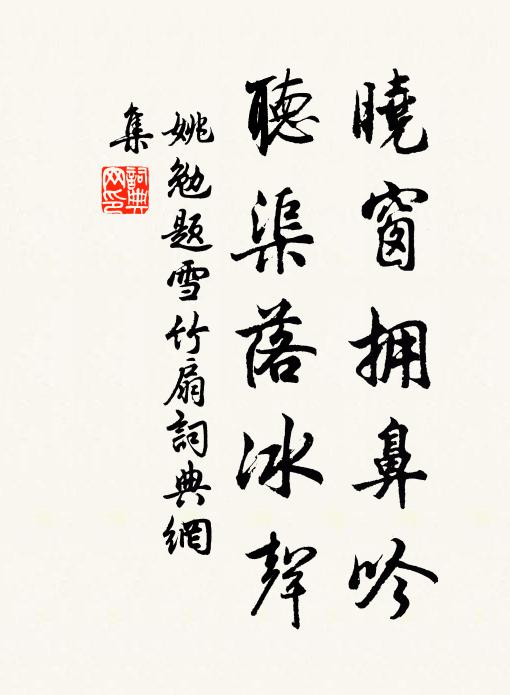 曉窗拥鼻吟
聽渠落冰聲
姚勉题雪竹扇詞典網
集
詞典网印